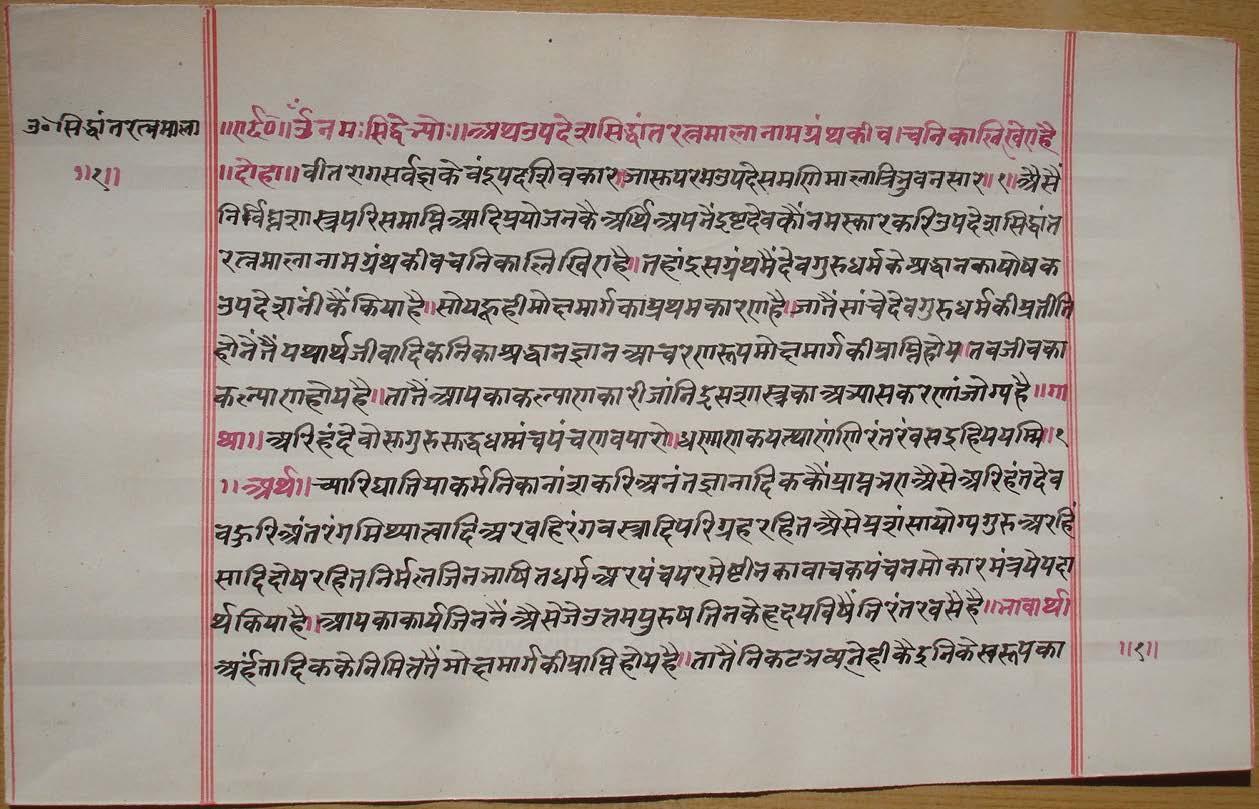 उ॰ सिद्धांतरत्नमाला
॥१॥
॥ए र्द०॥ ॐ नमः सिद्धेभ्योः॥ अथ उपदेशसिद्धांतरत्नमाला नाम ग्रंथ की वाचनिका लिखिए है
॥दोहा॥ वीतराग सर्वज्ञ के वंदू पद शिवकार। जासु परम उपदेस मणिमाला त्रिभुवन सार॥१॥ अैसैं
निर्विघ्न शास्त्र परिसमाप्ति आदि प्रयोजन कै अर्थि अपनें इष्टदेव कौं नमस्कार करि उपदेशसिद्धांत
रत्नमाला नाम ग्रंथ की वचनिका लिखिए है॥ तहां इस ग्रंथ मैं देव गुरु धर्म के श्रद्धान का पोषक
उपदेश नीकैं किया है॥ सो यहू ही मोक्षमार्ग का प्रथम कारण है॥ जातैं सांचे देव गुरु धर्म की प्रतीति
होनें तैं यथार्थ जीवादिकनि का श्रद्धान ज्ञान आचरण रूप मोक्षमार्ग की प्राप्ति होय। तब जीव का
कल्याण होय है॥ तातैं आपका कल्याणकारी जांनि इस शास्त्र का अभ्यास करणां जोग्य है॥ गा
था॥ अरिहं देवो सुगुरु सुद्ध धम्मं च पंच णवयारो। धण्णाण कयत्थाणं णिरंतरं वसइ हिययम्मि॥१
॥अर्थ॥ च्यारि घातिया कर्मनि का नांश करि अनंतज्ञानादिक कौं प्राप्त भए अैसे अरिहंतदेव
बहुरि अंतरंग मिथ्यात्वादि अर बहिरंग वस्त्रादि परिग्रह रहित अैसे प्रशंसा योग्य गुरु अर हिं
सादि दोष रहित निर्मल जिनभाषित धर्म अर पंच परमेष्टीन का वाचक पंच नमोकार मंत्र ये पदा
र्थ किया है। आपका कार्य जिननैं अैसे जे उत्तम पुरुष तिनके हृदय विषैं निरंतर वसै है॥ भावार्थ।
अर्हंतादिक के निमित्त तैं मोक्षमार्ग की प्राप्ति होय है॥ तातैं निकट भव्यनेही कै इनिके स्वरूप का
॥१॥